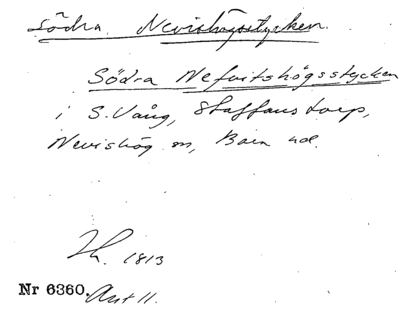 Södra Nevishögsstycken
Södra Nefvitshögsstycken
i S. Vång, Staffanstorp,
Nevishög sn, Bara hd.
Th. 1813
Nr 6360. Akt 11.